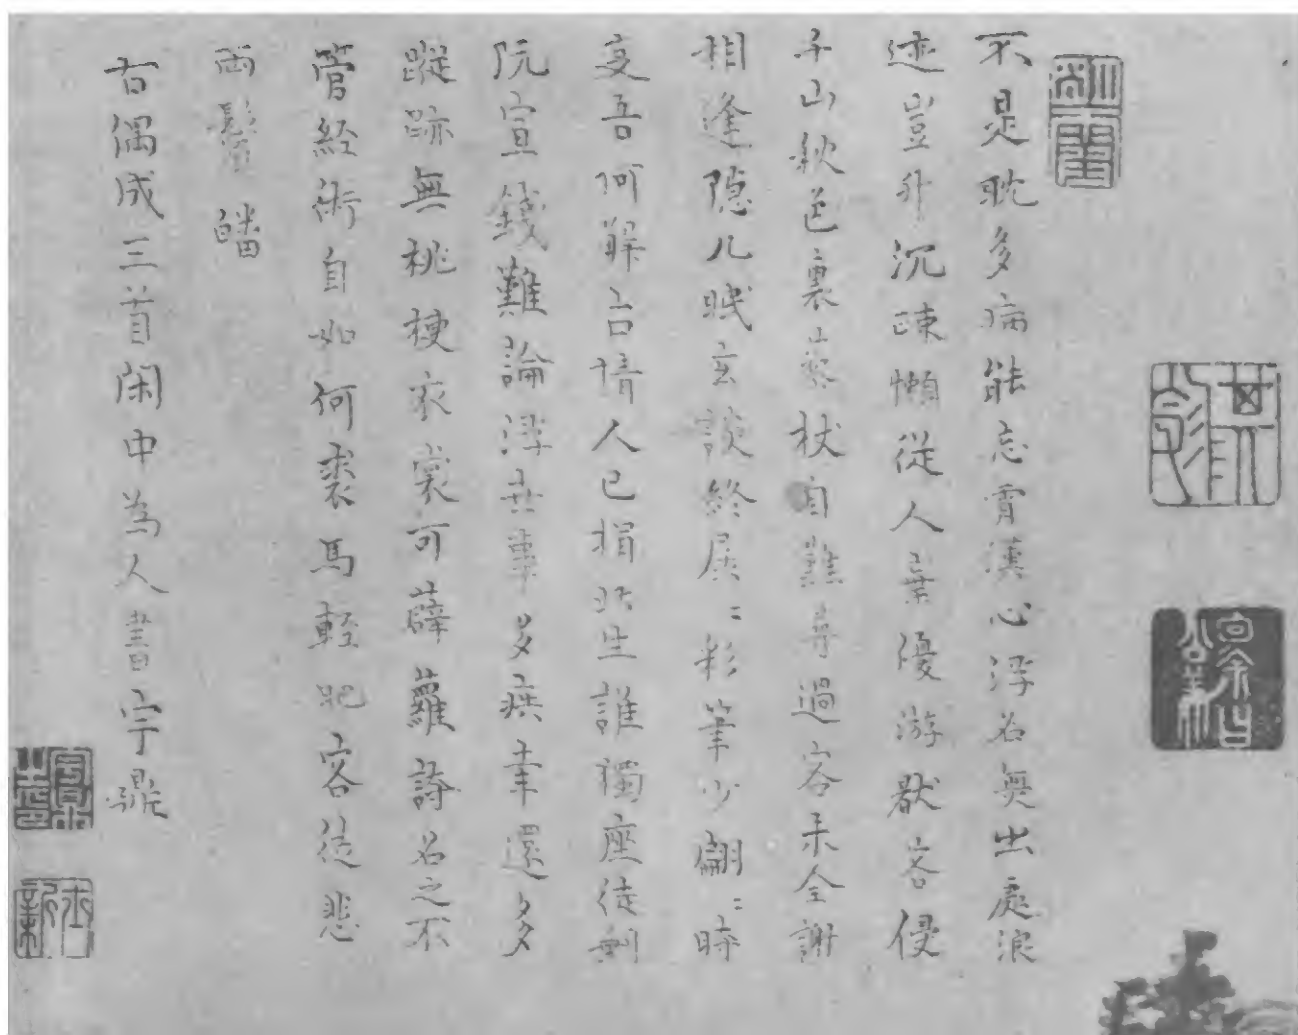 不是耽多病能忘霄漢心浮名無出處浪
迹豈升沉疎懶從人棄優游厭客侵
千山秋色裏藜杖自難尋過客未全謝
相逢隠几眠玄談終屑〻彩筆少翩〻時
変吾何解古情人已捐此生誰獨座徒剩
阮宣錢難論浮世事多疾幸還多
蹤跡無桃梗衣裳可薜蘿詩名之不
管経術自如何裘馬輕肥客徒悲
兩鬢皤
右偶成三首閑中為人書宇鼎